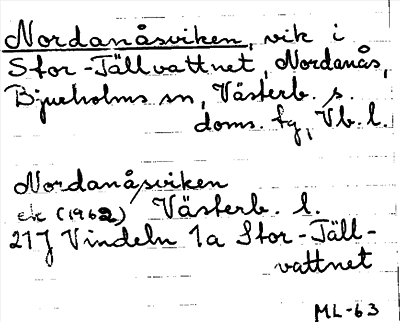 Nordanåsviken, vik i
Stor-Tällvattnet, Nordanås,
Bjurholms sn, Västerb. s.
doms. tg, Vb. l.
Nordanåsviken
ek (1962) Västerb. l.
21J Vindeln 1a Stor-Täll-
vattnet
ML-63